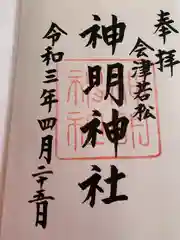 奉拝
会津若松
神明神社
令和三年四月二十五日